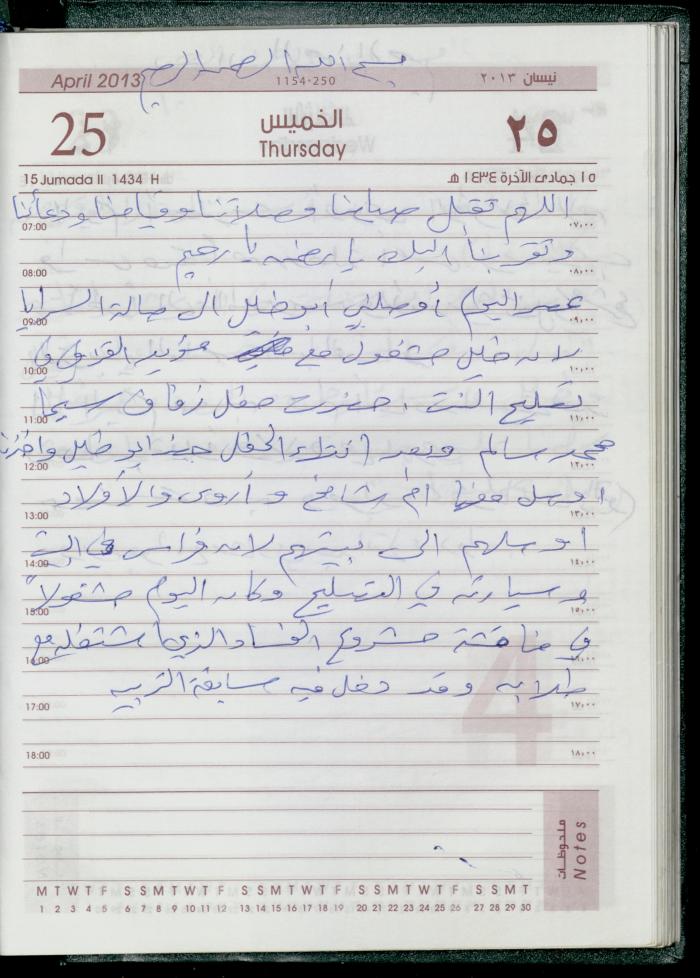 بسم الله الرحمن الرحيم
April 2013 1154-250 نيسان ٢٠١٣
25 الخميس ٢٥
Thursday
15 Jumada II 1434 H ١٥ جمادى الآخرة ١٤٣٤ هـ
اللهم تقبل صيامنا وصلاتنا وقيامنا ودعائنا
07:00 ٠٧,٠٠
وتقربنا اليك يا رحمن يا رحيم
08:00 ٠٨,٠٠
عصر اليوم أوصلني أبو خليل الى صالة السرايا
09:00 ٠٩,٠٠
لانه خليل مشغول مع مؤيد القراقي في
10:00 ١٠,٠٠
تصليح النت . حضرت حفل زفاف سيما
11:00 ١١,٠٠
محمد سالم وبعد انتهاء الحفل ابو خليل
12:00 ١٢,٠٠
اوصل معنا ام شامخ و أروى والأولاد
13:00 ١٣,٠٠
اوصلهم الى بيتهم لانه فراس في البيت
14:00 ١٤,٠٠
وسيارته في التصليح وكان اليوم مشغولاً
15:00 ١٥,٠٠
في مناقشة مشروع الفساد الذي اشتغله مع
16:00
طلابه وقد دخل فيه سابقة التربيه
17:00 ١٧,٠٠
18:00 ١٨,٠٠
4
ملحوظات
Notes
M T W T F S S M T W T F S S M T W T F S S M T W T F S S M T
1 2 3 4 5 6 7 8 9 10 11 12 13 14 15 16 17 18 19 20 21 22 23 24 25 26 27 28 29 30